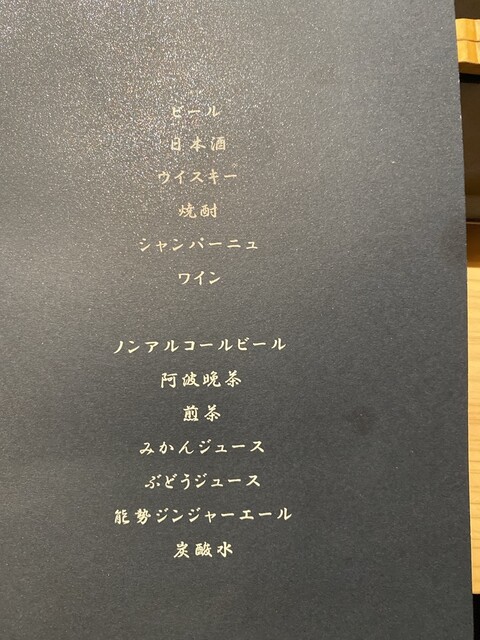 ビール
日本酒
ウイスキー
焼酎
シャンパーニュ
ワイン
ノンアルコールビール
阿波晩茶
煎茶
みかんジュース
ぶどうジュース
能勢ジンジャーエール
炭酸水